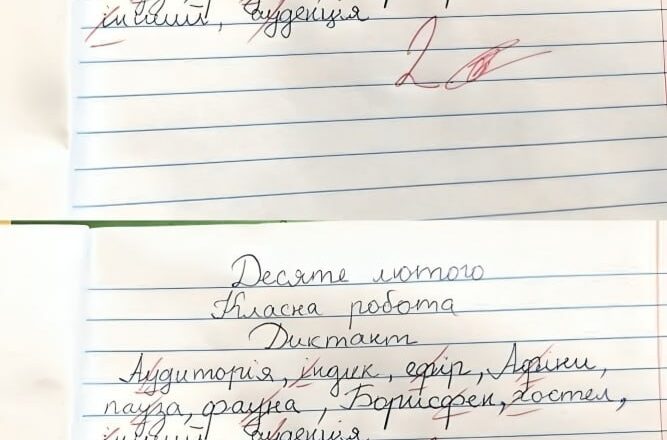 інший, ауденція
2
Десяте лютого
Класна робота
Диктант
Аудиторія, індик, ефір, Афіни,
пауза, фауна, Борисфен, хостел,
інший, ауденція